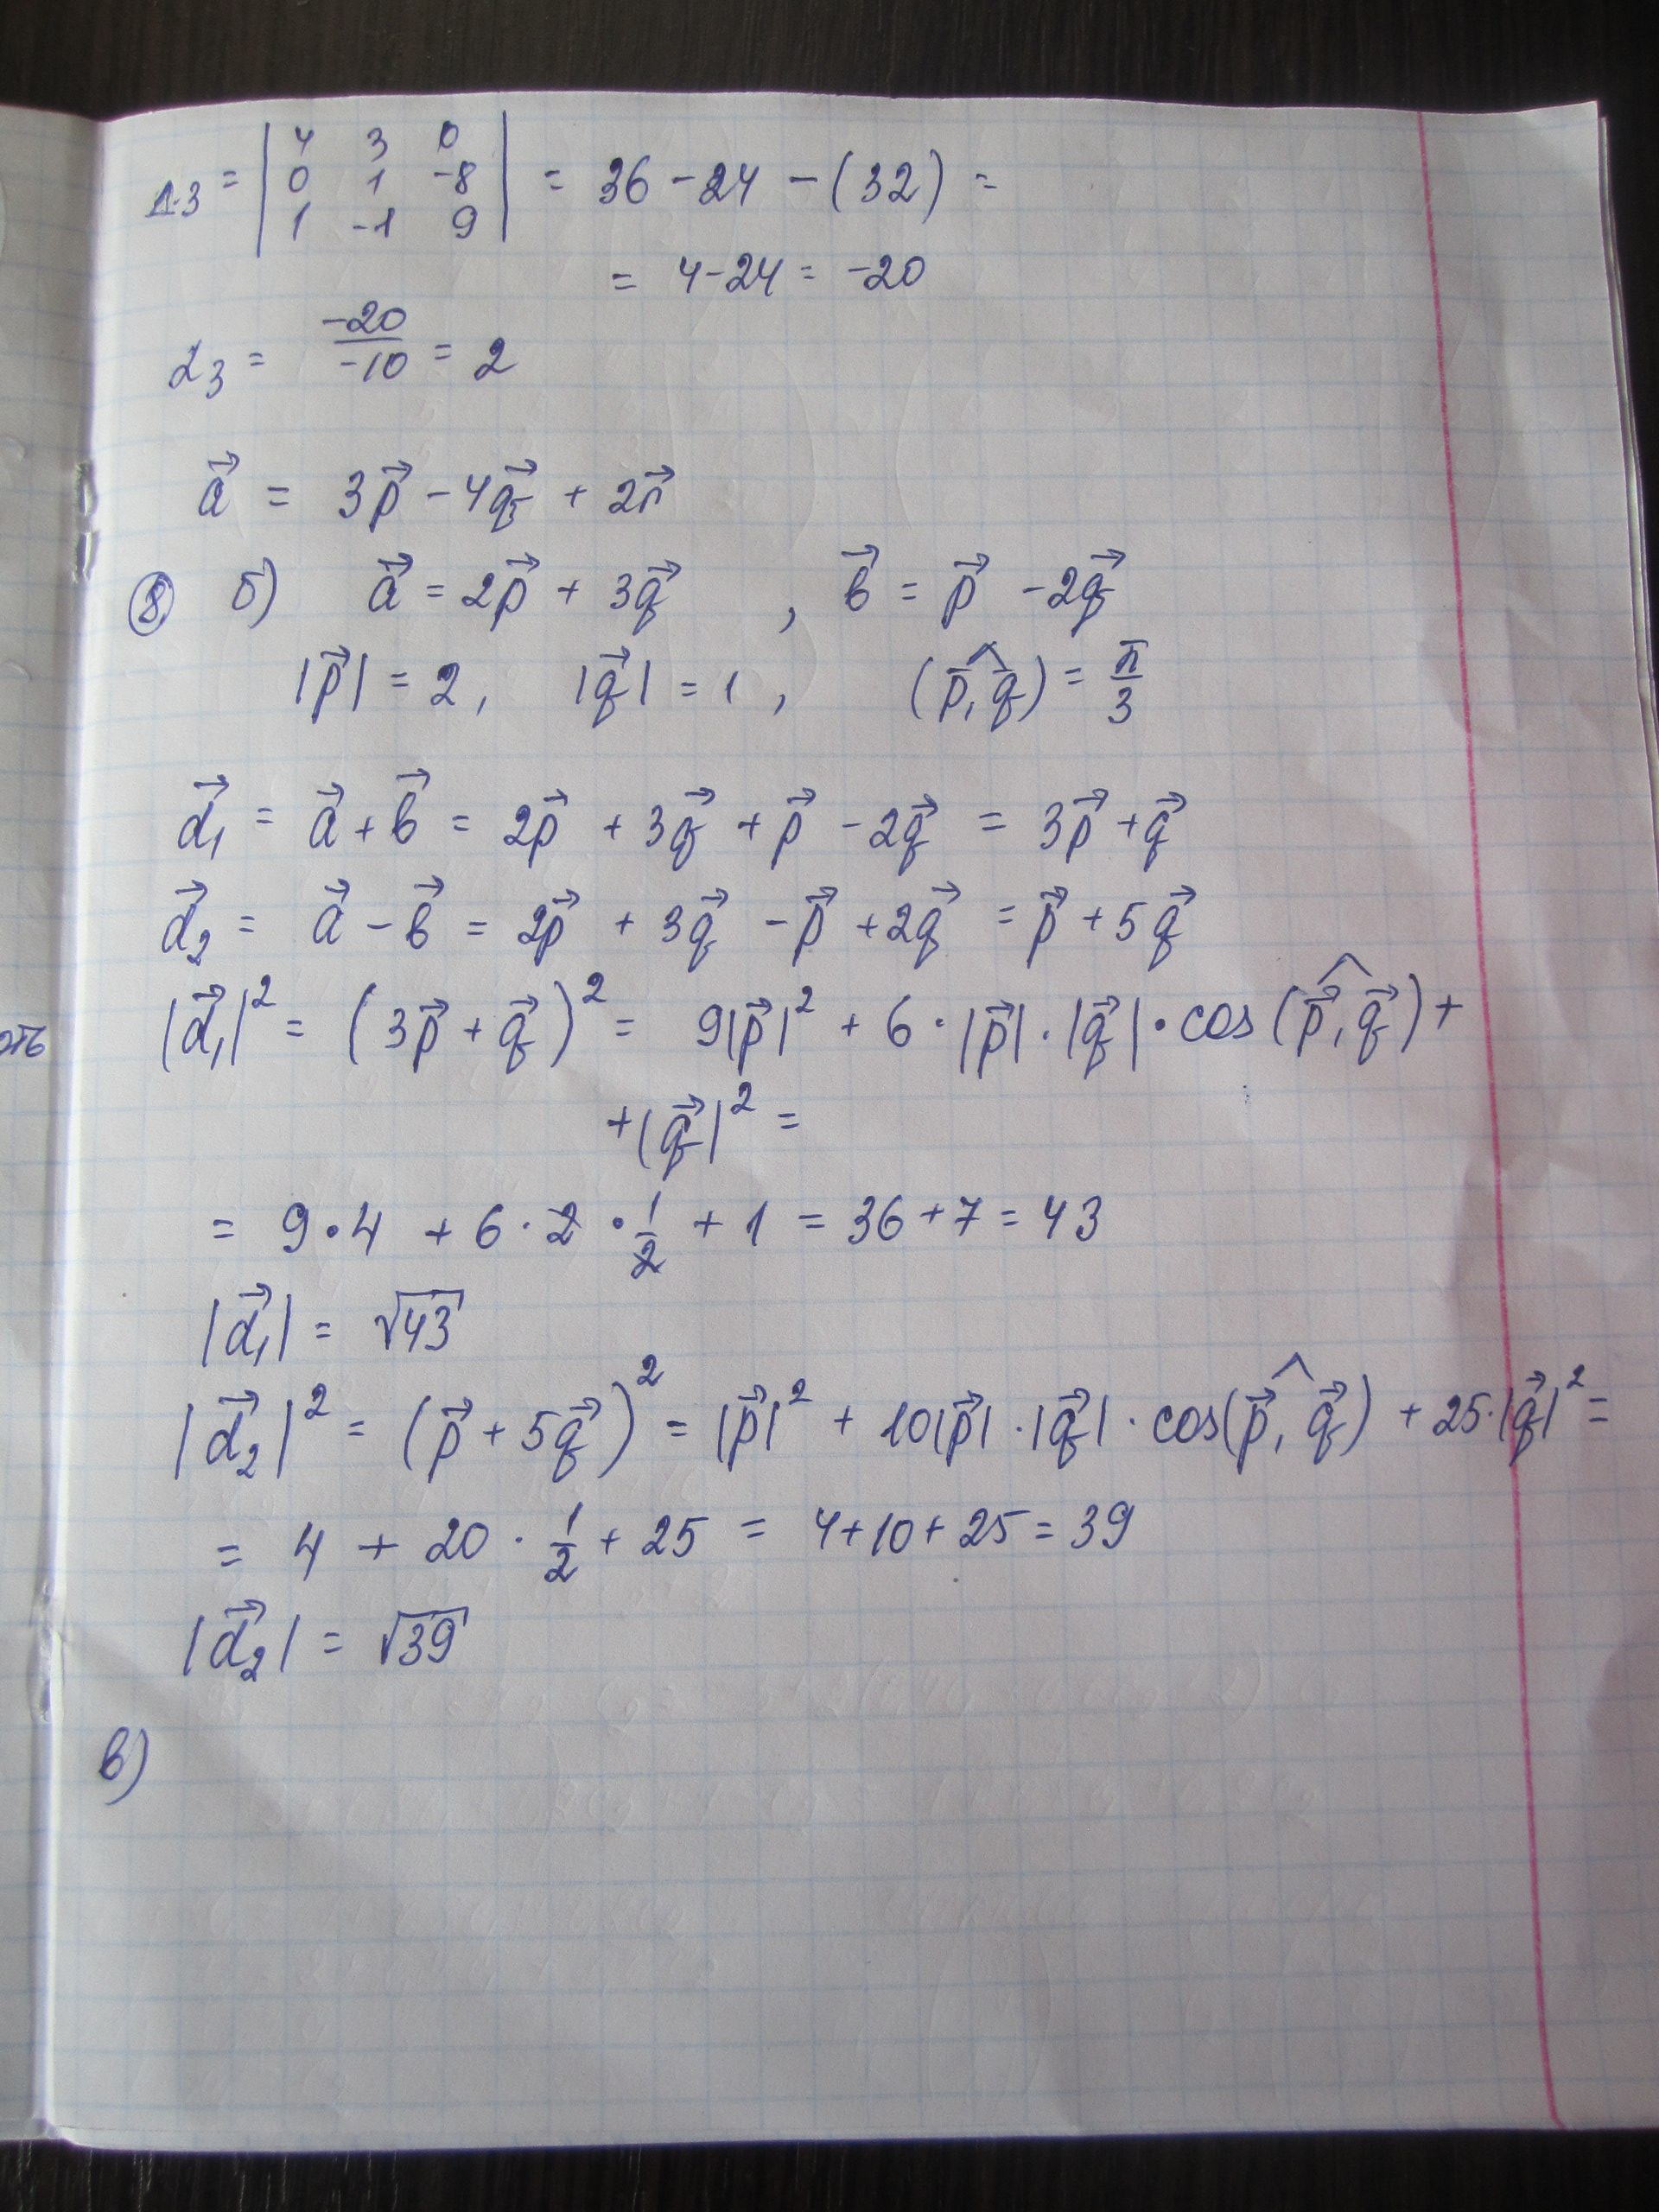 Δ3 = | 4 3 0 |
| 0 1 -8 | = 36 - 24 - (32) =
| 1 -1 9 |
= 4 - 24 = -20
α₃ = -20/-10 = 2
a⃗ = 3p⃗ - 4q⃗ + 2r⃗
⑧ б) a⃗ = 2p⃗ + 3q⃗ , в⃗ = p⃗ - 2q⃗
|p⃗| = 2, |q⃗| = 1, (p⃗,^q⃗) = π/3
d⃗₁ = a⃗ + в⃗ = 2p⃗ + 3q⃗ + p⃗ - 2q⃗ = 3p⃗ + q⃗
d⃗₂ = a⃗ - в⃗ = 2p⃗ + 3q⃗ - p⃗ + 2q⃗ = p⃗ + 5q⃗
|d⃗₁|² = (3p⃗ + q⃗)² = 9|p⃗|² + 6·|p⃗|·|q⃗|·cos(p⃗,^q⃗) +
+|q⃗|² =
= 9·4 + 6·2·1/2 + 1 = 36 + 7 = 43
|d⃗₁| = √43
|d⃗₂|² = (p⃗ + 5q⃗)² = |p⃗|² + 10|p⃗|·|q⃗|·cos(p⃗,^q⃗) + 25·|q⃗|² =
= 4 + 20·1/2 + 25 = 4 + 10 + 25 = 39
|d⃗₂| = √39
в)